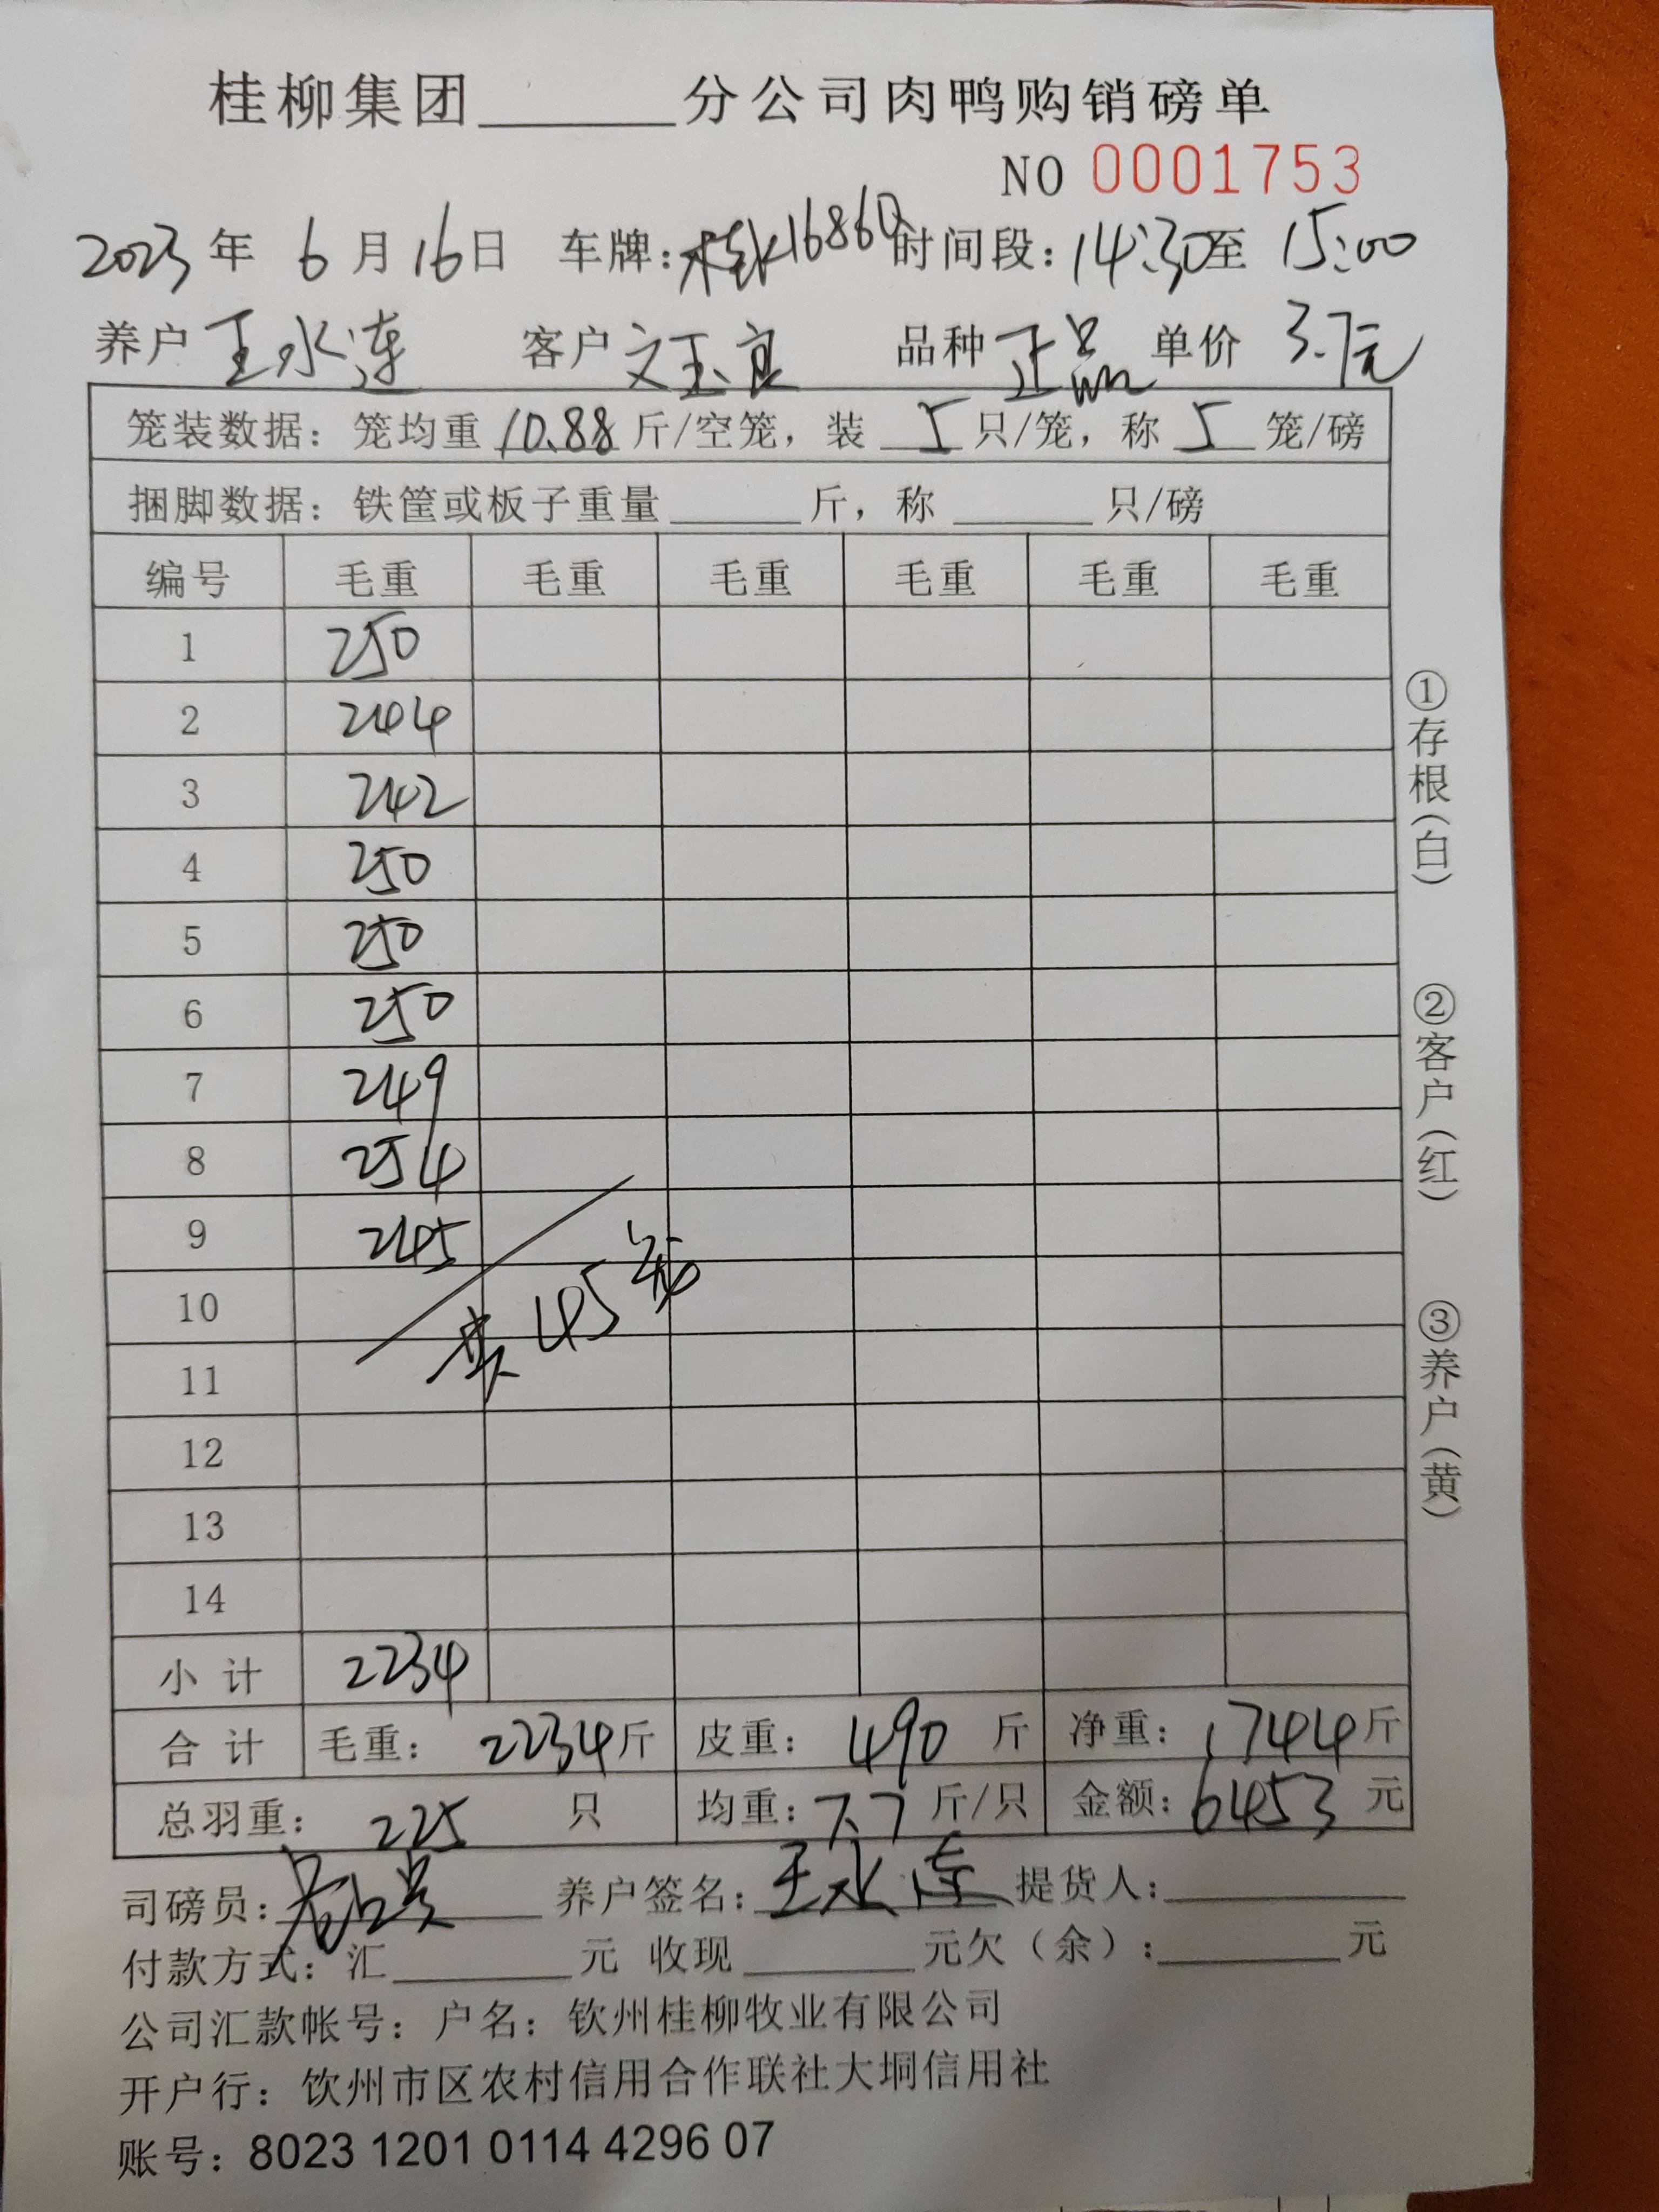 桂柳集团______分公司肉鸭购销磅单
NO 0001753
2023年 6月16日 车牌:桂K16860 时间段:14:30至 15:00
养户 王水连 客户 文玉宜 品种 正品 单价 3.7元
笼装数据: 笼均重 10.88 斤/空笼, 装 5 只/笼, 称 5 笼/磅
捆脚数据: 铁筐或板子重量______斤, 称______只/磅
编号 毛重 毛重 毛重 毛重 毛重 毛重
1 250
2 244
3 242
4 250
5 250
6 250
7 249
8 254
9 245
10
共45笼
11
12
13
14
小计 2234
合计 毛重: 2234斤 皮重: 490 斤 净重: 1744斤
总羽重: 225 只 均重: 7.7 斤/只 金额: 6453 元
司磅员: 养户签名: 王水连 提货人:______
付款方式: 汇______元 收现______元欠(余):______元
公司汇款帐号: 户名: 钦州桂柳牧业有限公司
开户行: 钦州市区农村信用合作联社大垌信用社
账号: 8023 1201 0114 4296 07
①存根(白)
②客户(红)
③养户(黄)